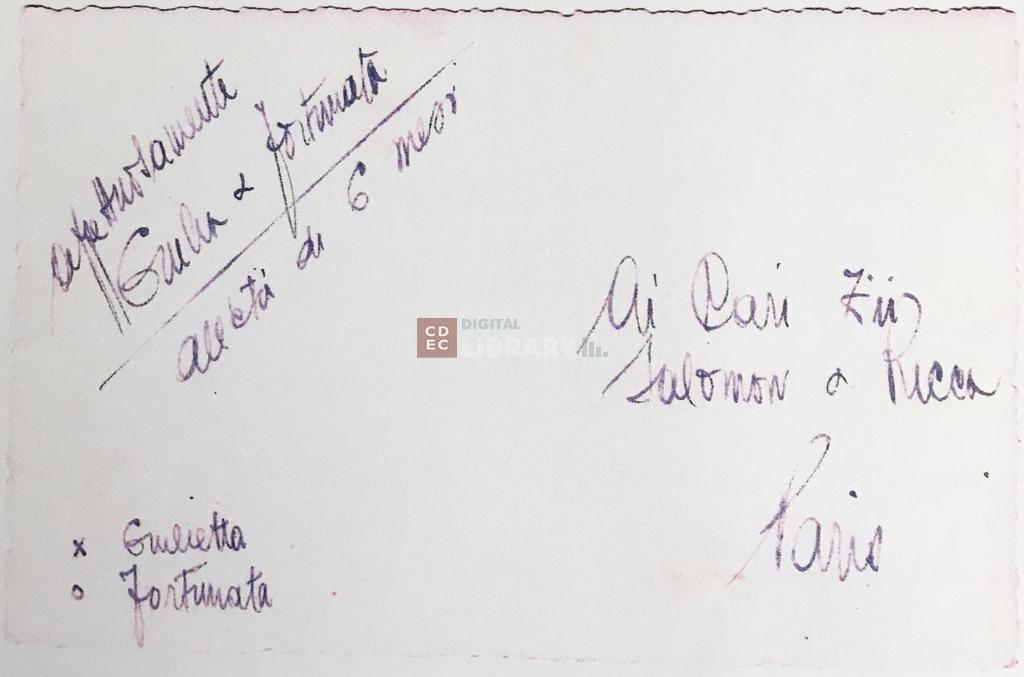 affettuosamente
Giulia & Fortunata
all'età di 6 mesi
Ai Cari Zii
Salomon & Ricca
Paris
x Giulietta
o Fortunata
CD
EC
DIGITAL
LIBRARY